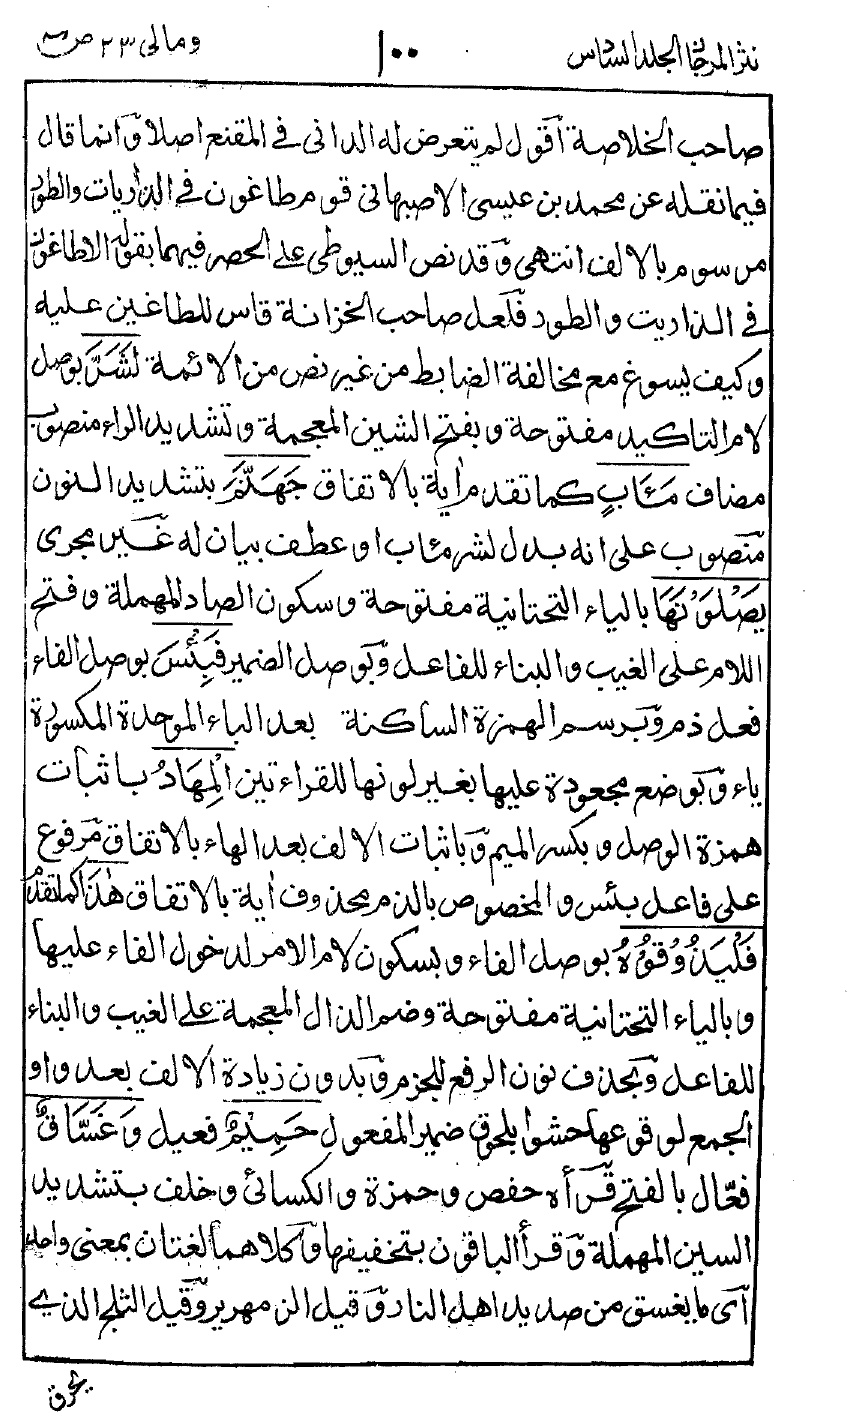 نثر المرجان الجلد السادس ١٠٠ ومالى ٢٣ ص
صاحب الخلاصة أقول لم يتعرض له الدانى فى المقنع اصلا وانما قال
فيما نقله عن محمد بن عيسى الاصبهانى قوم طاغون فى الذاريات والطور
مرسوم بالالف انتهى وقد نص السيوطى على الحصر فيهما بقوله الاطاغون
فى الذاريت والطور فلعل صاحب الخزانة قاس للطاغين عليه
وكيف يسوغ مع مخالفة الضابط من غير نص من الائمة لَشَرَّ بوصل
لام التاكيد مفتوحة وبفتح الشين المعجمة وتشديد الراء منصوب
مضاف مَـَٔابٍ كما تقدم اٰية بالاتفاق جَهَنَّمَ بتشديد النون
منصوب على انه بدل لشر مئاب او عطف بيان له غير مجرى
يَصْلَوْنَهَا بالياء التحتانية مفتوحة وسكون الصاد المهملة وفتح
اللام على الغيب والبناء للفاعل وبوصل الضمير فَبِئْسَ بوصل الفاء
فعل ذم وبرسم الهمزة الساكنة بعد الباء الموحدة المكسورة
ياء وبوضع مجعودة عليها بغير لونها للقراءتين الْمِهَادُ باثبات
همزة الوصل وبكسر الميم وباثبات الالف بعد الهاء بالاتفاق مرفوع
على فاعل بئس والمخصوص بالذم محذوف اٰية بالاتفاق هٰذَا كما تقدم
فَلْيَذُوقُوْهُ بوصل الفاء وبسكون لام الامر لدخول الفاء عليها
وبالياء التحتانية مفتوحة وضم الذال المعجمة على الغيب والبناء
للفاعل وبحذف نون الرفع للجزم وبدون زيادة الالف بعد واو
الجمع لوقوعها حشوا بلحوق ضمير المفعول حَمِيْمٌ فعيل وَغَسَّاقٌ
فعّال بالفتح قرأه حفص وحمزة والكسائى وخلف بتشديد
السين المهملة وقرأ الباقون بتخفيفها وكلاهما لغتان بمعنى واحد
أى ما يغسق من صديد اهل النار وقيل الزمهرير وقيل الثلج الذى
يحرق